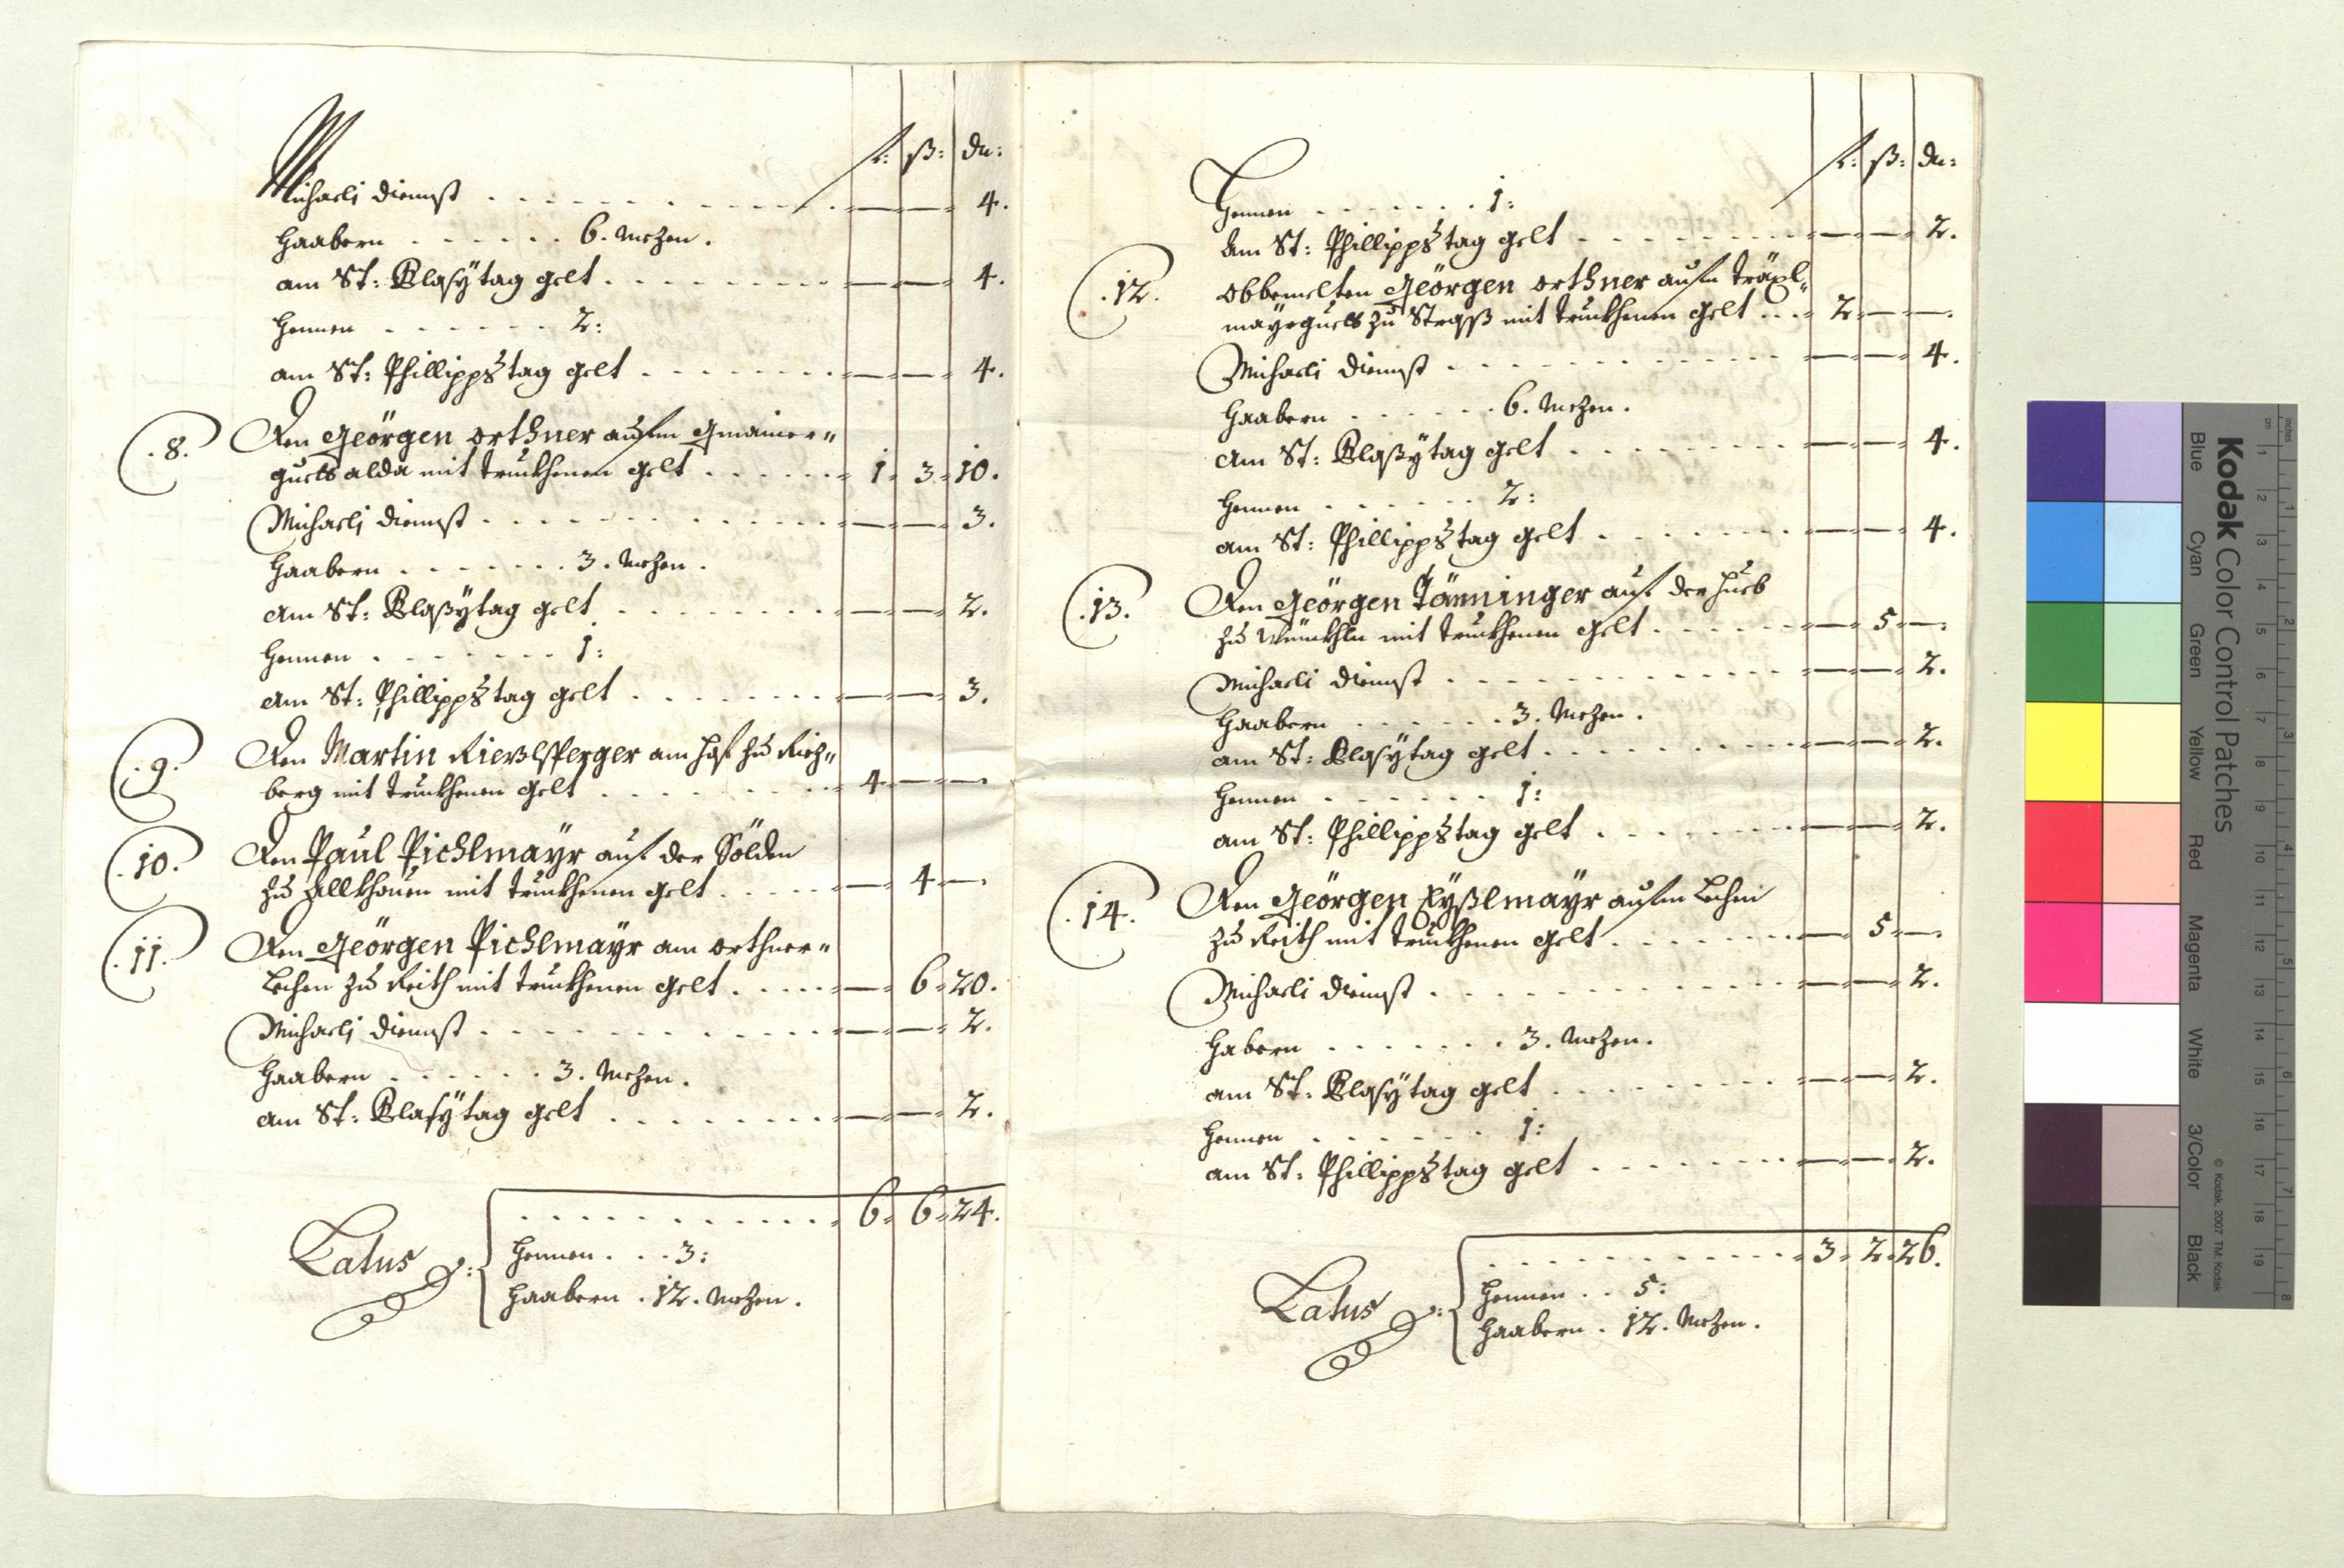 f: ß: dn:
Michaeli dienst . . . . . . . . . . — — 4.
Haabern . . . . . . 6. Mezen.
am St: Blasÿtag gelt . . . . . . . — — 4.
Hennen . . . . . . 2:
am St: Phillippstag gelt . . . . . . — — 4.
.8. Den Geörgen Orthner aufm Gmainer„
guetl alda mit truckhenen gelt . . . . . 1. 3. 10.
Michaeli dienst . . . . . . . . . . — — 3.
Haabern . . . . . . . 3. Mezen.
am St: Blaßÿtag gelt . . . . . . . — — 2.
Hennen . . . . . . . 1:
am St: Phillippstag gelt . . . . . . — — 3.
.9. Den Martin am Hof zu
berg mit truckhenen gelt . . . . . . . 4 — —
.10. Den Paul Pichlmayr auf der Sölden
zu mit truckhenen gelt . . . . — 4 —
.11. Den Geörgen Pichlmayr am Orthner„
Lechen zu Reith mit truckhenen gelt . . . . — 6. 20.
Michaeli dienst . . . . . . . . . . — — 2.
Haabern . . . . . . 3. Mezen.
am St: Blasÿtag gelt . . . . . . . — — 2.
Latus . . . . . . . . . . . 6. 6. 24.
Hennen . . . 3:
Haabern . 12. Mezen.
f: ß: dn:
Hennen . . . . . . . 1:
Am St: Phillippstag gelt . . . . . . . — — 2.
.12. Obbemelten Geörgen Orthner aufm Träxl„
mayrguetl zu Straß mit truckhenen gelt . . . 2 — —
Michaeli dienst . . . . . . . . . . — — 4.
Haabern . . . . . . 6. Mezen.
am St: Blaßÿtag gelt . . . . . . . — — 4.
Hennen . . . . . . 2:
am St: Phillippstag gelt . . . . . . — — 4.
.13. Den Geörgen Tänninger auf der Hueb
zu mit truckhenen gelt . . . . . — 5 —
Michaeli dienst . . . . . . . . . . — — 2.
Haabern . . . . . . 3. Mezen.
am St: Blasÿtag gelt . . . . . . . . — — 2.
Hennen . . . . . . 1:
am St: Phillippstag gelt . . . . . . — — 2.
.14. Den Geörgen aufm Lechen
zu Reith mit truckhenen gelt . . . . . . — 5 —
Michaeli dienst . . . . . . . . . . — — 2.
Habern . . . . . . 3. Mezen.
am St: Blasÿtag gelt . . . . . . . — — 2.
Hennen . . . . . . 1:
am St: Phillippstag gelt . . . . . . — — 2.
Latus . . . . . . . . . . 3. 2. 26.
Hennen . . 5:
Haabern . 12. Mezen.
Kodak Color Control Patches
Blue Cyan Green Yellow Red Magenta White 3/Color Black
© Kodak, 2007 TM: Kodak
cm 1 2 3 4 5 6 7 8 9 10 11 12 13 14 15 16 17 18 19
inches 1 2 3 4 5 6 7 8